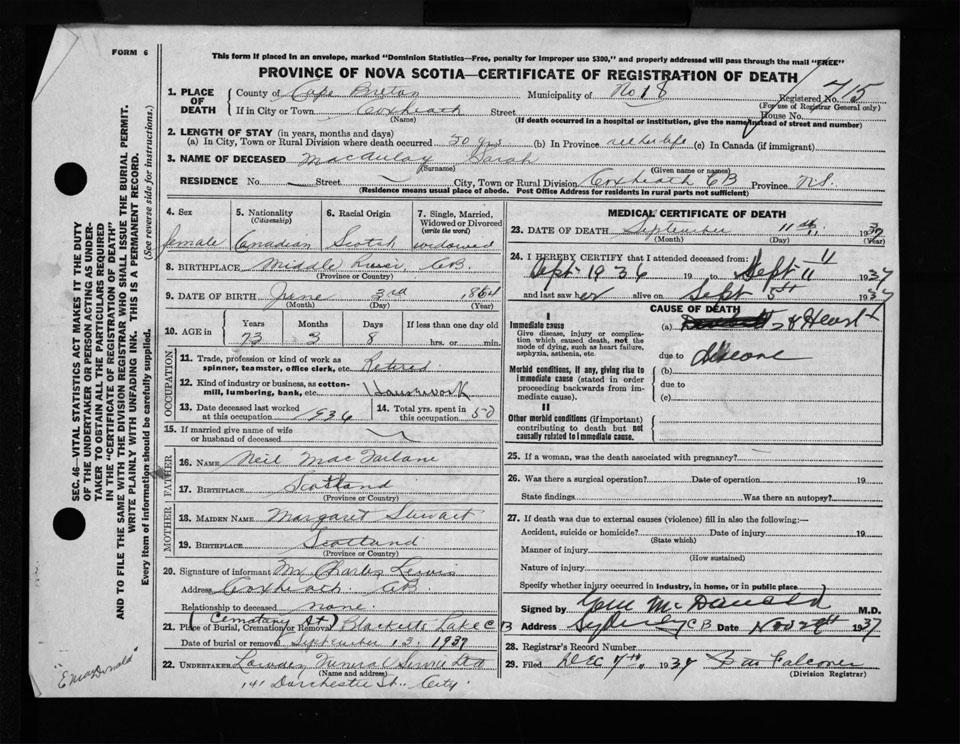 FORM 6
This form if placed in an envelope, marked "Dominion Statistics—Free, penalty for improper use $300," and properly addressed will pass through the mail "FREE"
PROVINCE OF NOVA SCOTIA—CERTIFICATE OF REGISTRATION OF DEATH
1. PLACE OF DEATH
County of Cape Breton Municipality of No 18 Registered No. 715
(For use of Registrar General only)
If in City or Town Coxheath Street House No.
(Name) (If death occurred in a hospital or institution, give the name instead of street and number)
2. LENGTH OF STAY (in years, months and days)
(a) In City, Town or Rural Division where death occurred 50 yrs (b) In Province all her life (c) In Canada (if immigrant)
3. NAME OF DECEASED MacAulay Sarah
(Surname) (Given name or names)
RESIDENCE No. Street City, Town or Rural Division Coxheath CB Province N.S.
(Residence means usual place of abode. Post Office Address for residents in rural parts not sufficient)
4. Sex 5. Nationality (Citizenship) 6. Racial Origin 7. Single, Married, Widowed or Divorced (write the word)
female Canadian Scotch widowed
8. BIRTHPLACE Middle River CB.
(Province or Country)
9. DATE OF BIRTH June 3rd 1864
(Month) (Day) (Year)
10. AGE in Years Months Days If less than one day old
73 3 8 hrs. or min.
OCCUPATION
11. Trade, profession or kind of work as spinner, teamster, office clerk, etc. Retired
12. Kind of industry or business, as cotton-mill, lumbering, bank, etc. Housework
13. Date deceased last worked at this occupation 1936 14. Total yrs. spent in this occupation 50
15. If married give name of wife or husband of deceased
FATHER
16. NAME Neil MacFarlane
17. BIRTHPLACE Scotland
(Province or Country)
MOTHER
18. MAIDEN NAME Margaret Stewart
19. BIRTHPLACE Scotland
(Province or Country)
20. Signature of informant Mr Charles Lewis
Address Coxheath CB.
Relationship to deceased none.
(Cematary St)
21. Place of Burial, Cremation or Removal Blacketts Lake C B
Date of burial or removal September 13, 1937
22. UNDERTAKER Funeral Service Ltd
(Name and address)
141 Dorchester St. City.
MEDICAL CERTIFICATE OF DEATH
23. DATE OF DEATH September 11th 1937
(Month) (Day) (Year)
24. I HEREBY CERTIFY that I attended deceased from
Sept 1936 19 to Sept 11 1937
and last saw her alive on Sept 5th 1937
CAUSE OF DEATH
I
Immediate cause
Give disease, injury or complication which caused death, not the mode of dying, such as heart failure, asphyxia, asthenia, etc.
(a) Heart
due to disease
Morbid conditions, if any, giving rise to immediate cause (stated in order proceeding backwards from immediate cause).
(b)
due to
(c)
II
Other morbid conditions (if important) contributing to death but not causally related to immediate cause.
25. If a woman, was the death associated with pregnancy?
26. Was there a surgical operation? Date of operation 19
State findings Was there an autopsy?
27. If death was due to external causes (violence) fill in also the following:—
Accident, suicide or homicide? Date of injury 19
(State which)
Manner of injury
(How sustained)
Nature of injury
Specify whether injury occurred in industry, in home, or in public place
Signed by McDonald M.D.
Address Sydney CB Date Nov 29th 1937
28. Registrar's Record Number
29. Filed Dec 7th 1937 Falconer
(Division Registrar)
SEC. 46—VITAL STATISTICS ACT MAKES IT THE DUTY
OF THE UNDERTAKER OR PERSON ACTING AS UNDER-
TAKER TO OBTAIN ALL THE PARTICULARS REQUIRED
IN THE "CERTIFICATE OF REGISTRATION OF DEATH"
AND TO FILE THE SAME WITH THE DIVISION REGISTRAR WHO SHALL ISSUE THE BURIAL PERMIT.
WRITE PLAINLY WITH UNFADING INK. THIS IS A PERMANENT RECORD.
Every item of information should be carefully supplied. (See reverse side for instructions.)
"E MacDonald"